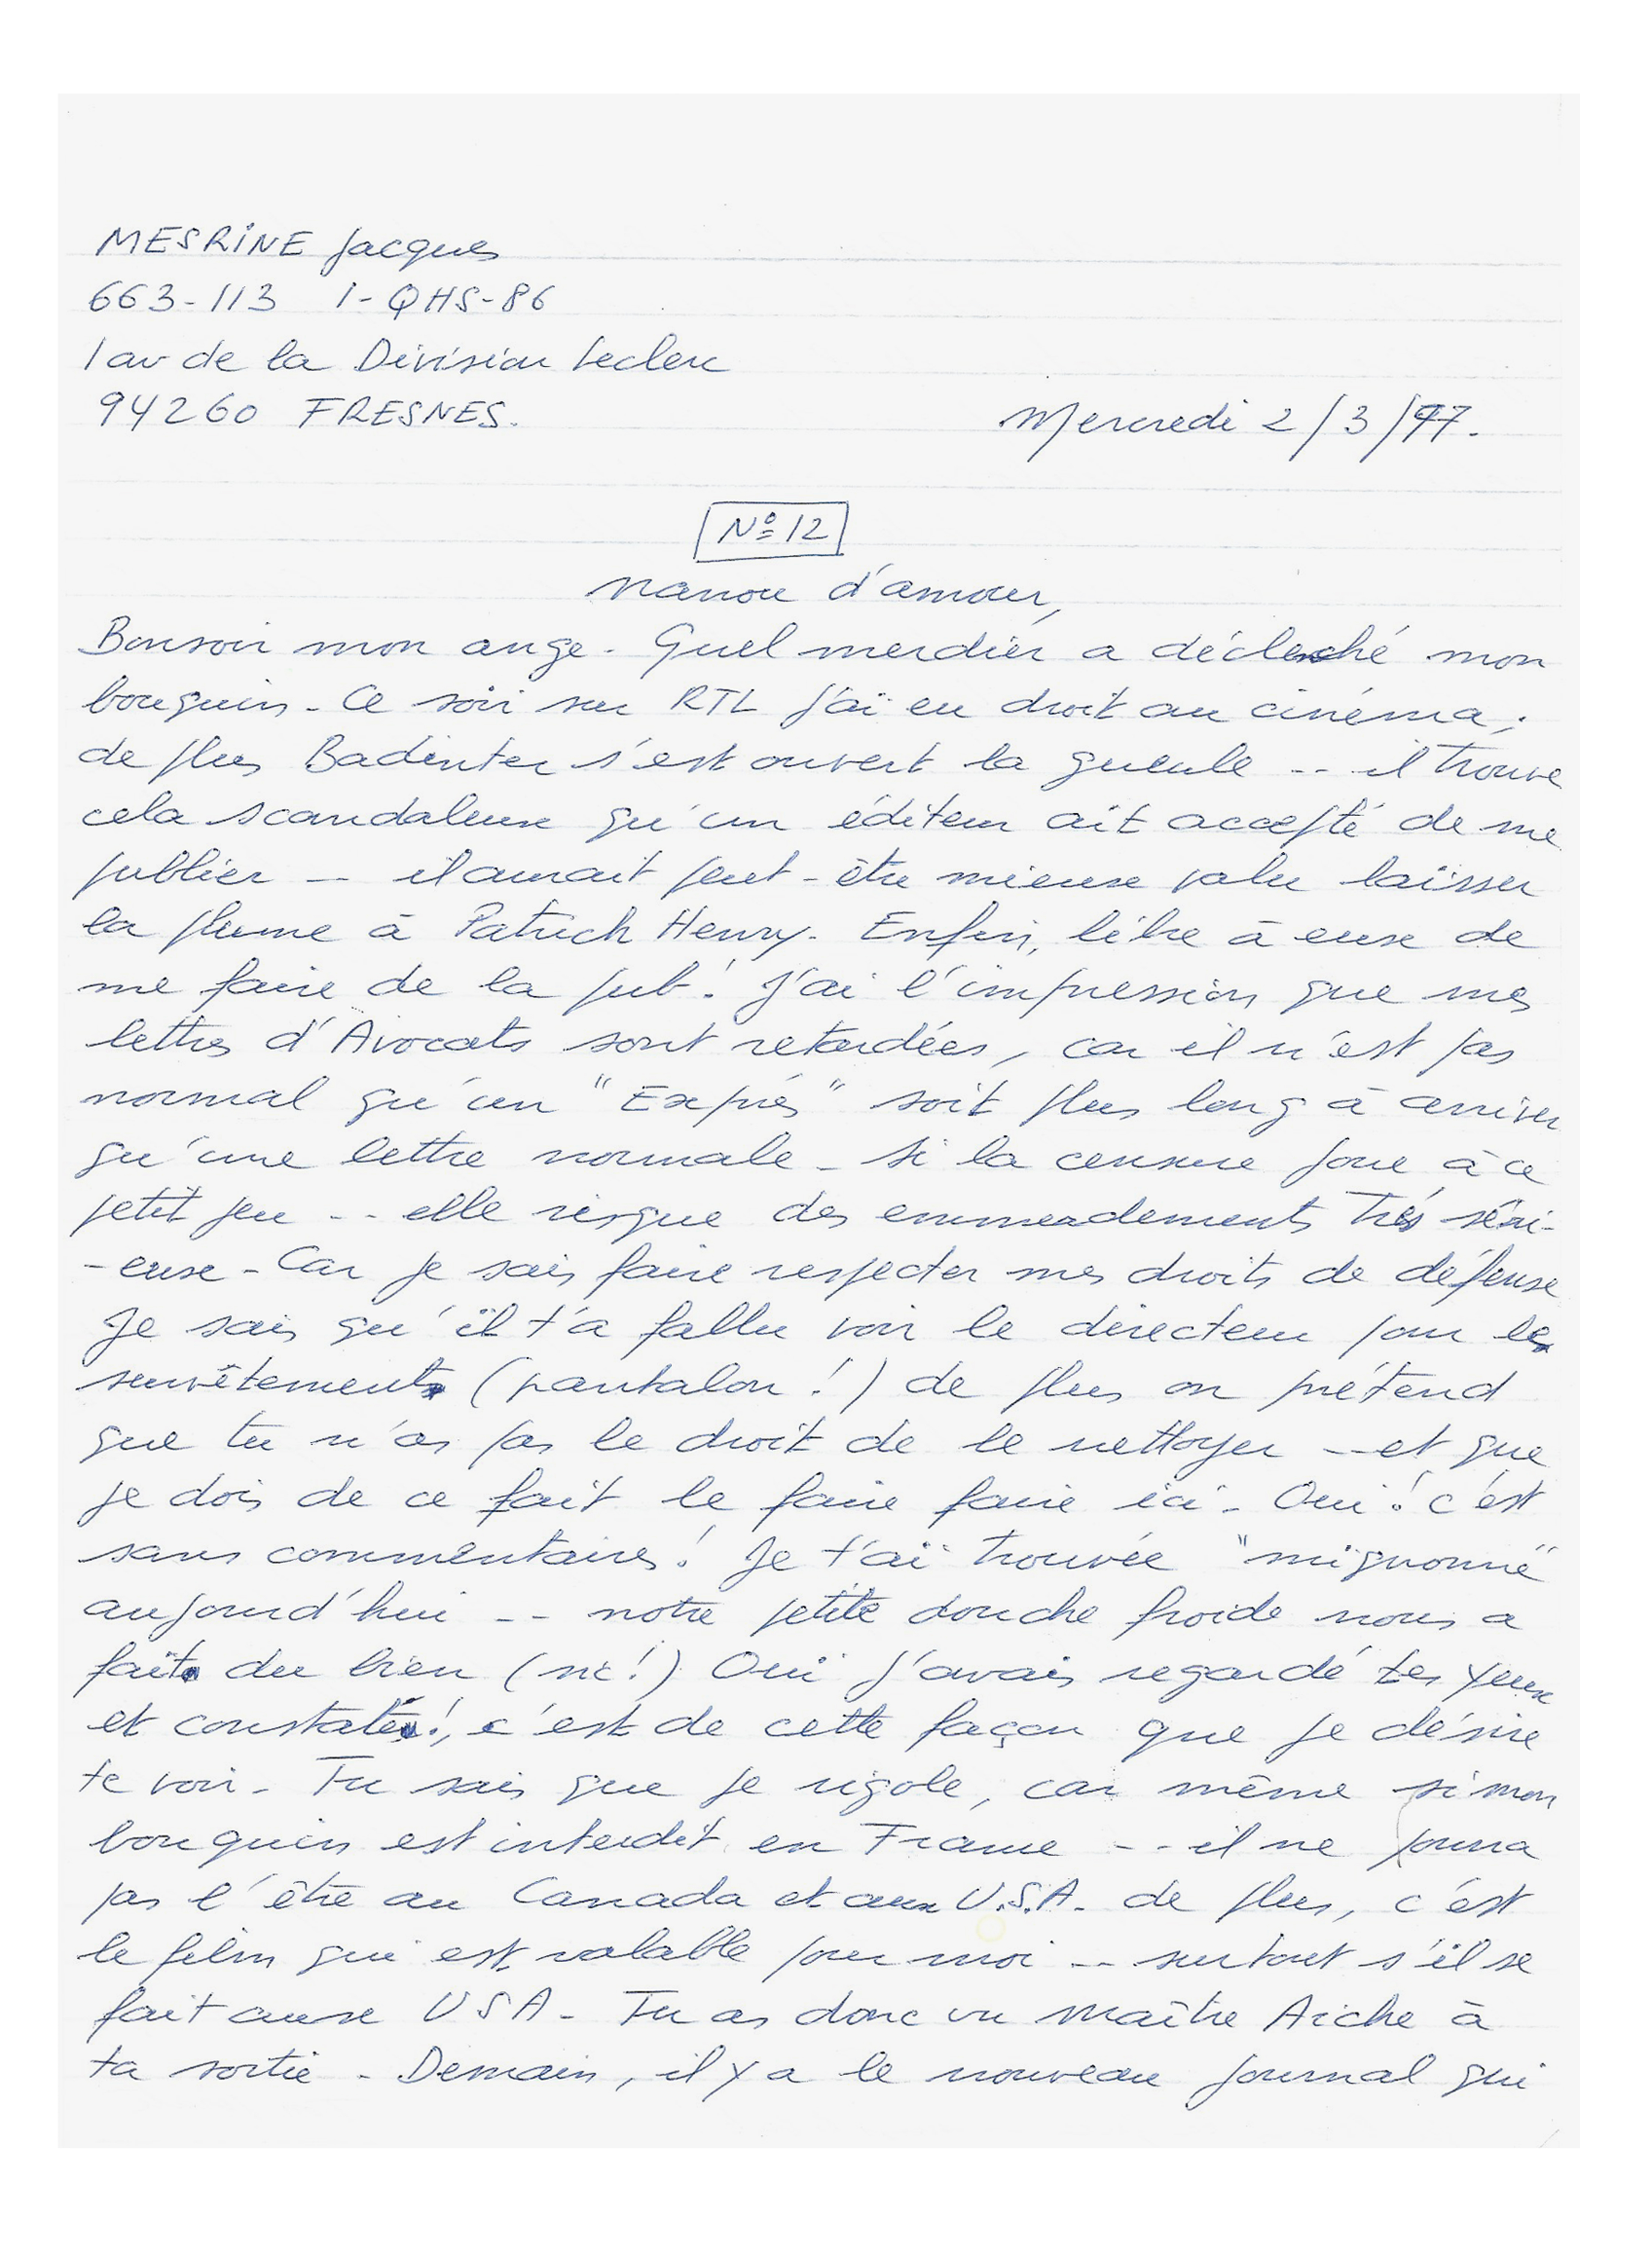 MESRINE Jacques
663-113 1-QHS-86
1 av de la Division Leclerc
94260 FRESNES.
Mercredi 2/3/77.
Nº 12
Nanou d'amour,
Bonsoir mon ange. Quel merdier a déclenché mon
bouquin - Ce soir sur RTL j'ai eu droit au cinéma,
de plus Badinter s'est ouvert la gueule -- il trouve
cela scandaleux qu'un éditeur ait accepté de me
publier -- il aurait peut-être mieux valu laisser
la plume à Patrick Henry. Enfin, libre à eux de
me faire de la pub! J'ai l'impression que mes
lettres d'Avocats sont retardées, car il n'est pas
normal qu'un "Exprès" soit plus long à arriver
qu'une lettre normale - si la censure joue à ce
petit jeu -- elle risque des emmerdements très séri-
-eux - Car je sais faire respecter mes droits de défense
Je sais qu'il t'a fallu voir le directeur pour le
survêtement (pantalon!) de plus on prétend
que tu n'as pas le droit de le nettoyer -- et que
je dois de ce fait le faire faire ici - Oui! c'est
sans commentaires! Je t'ai trouvée "mignonne"
aujourd'hui -- notre petite douche froide nous a
fait du bien (sic!) Oui j'avais regardé tes yeux
et constaté!, c'est de cette façon que je désire
te voir - Tu sais que je rigole, car même si mon
bouquin est interdit en France -- il ne pourra
pas l'être au Canada et aux U.S.A. de plus, c'est
le film qui est valable pour moi -- surtout s'il se
fait aux USA - Tu as donc vu Maître Aiche à
ta sortie - Demain, il y a le nouveau journal qui